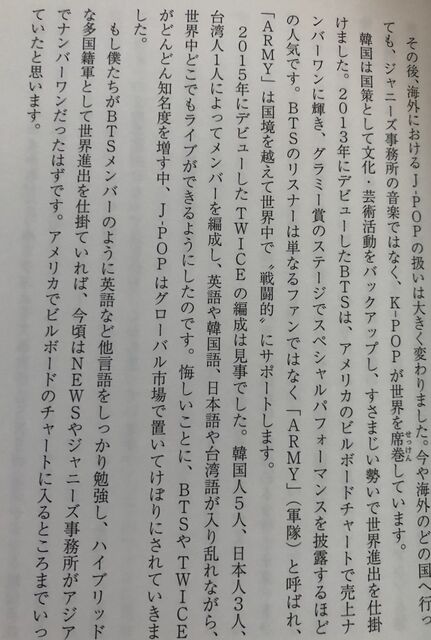 その後、海外におけるJ-POPの扱いは大きく変わりました。今や海外のどの国へ行っ
ても、ジャニーズ事務所の音楽ではなく、K-POPが世界を席巻しています。
韓国は国策として文化・芸術活動をバックアップし、すさまじい勢いで世界進出を仕掛
けました。2013年にデビューしたBTSは、アメリカのビルボードチャートで売上ナ
ンバーワンに輝き、グラミー賞のステージでスペシャルパフォーマンスを披露するほど
の人気です。BTSのリスナーは単なるファンではなく「ARMY」(軍隊)と呼ばれ、
「ARMY」は国境を越えて世界中で〝戦闘的〟にサポートします。
2015年にデビューしたTWICEの編成は見事でした。韓国人5人、日本人3人、
台湾人1人によってメンバーを編成し、英語や韓国語、日本語や台湾語が入り乱れながら、
世界中どこでもライブができるようにしたのです。悔しいことに、BTSやTWICE
がどんどん知名度を増す中、J-POPはグローバル市場で置いてけぼりにされていきま
した。
もし僕たちがBTSメンバーのように英語など他言語をしっかり勉強し、ハイブリッド
な多国籍軍として世界進出を仕掛ていれば、今頃はNEWSやジャニーズ事務所がアジア
でナンバーワンだったはずです。アメリカでビルボードのチャートに入るところまでいっ
ていたと思います。